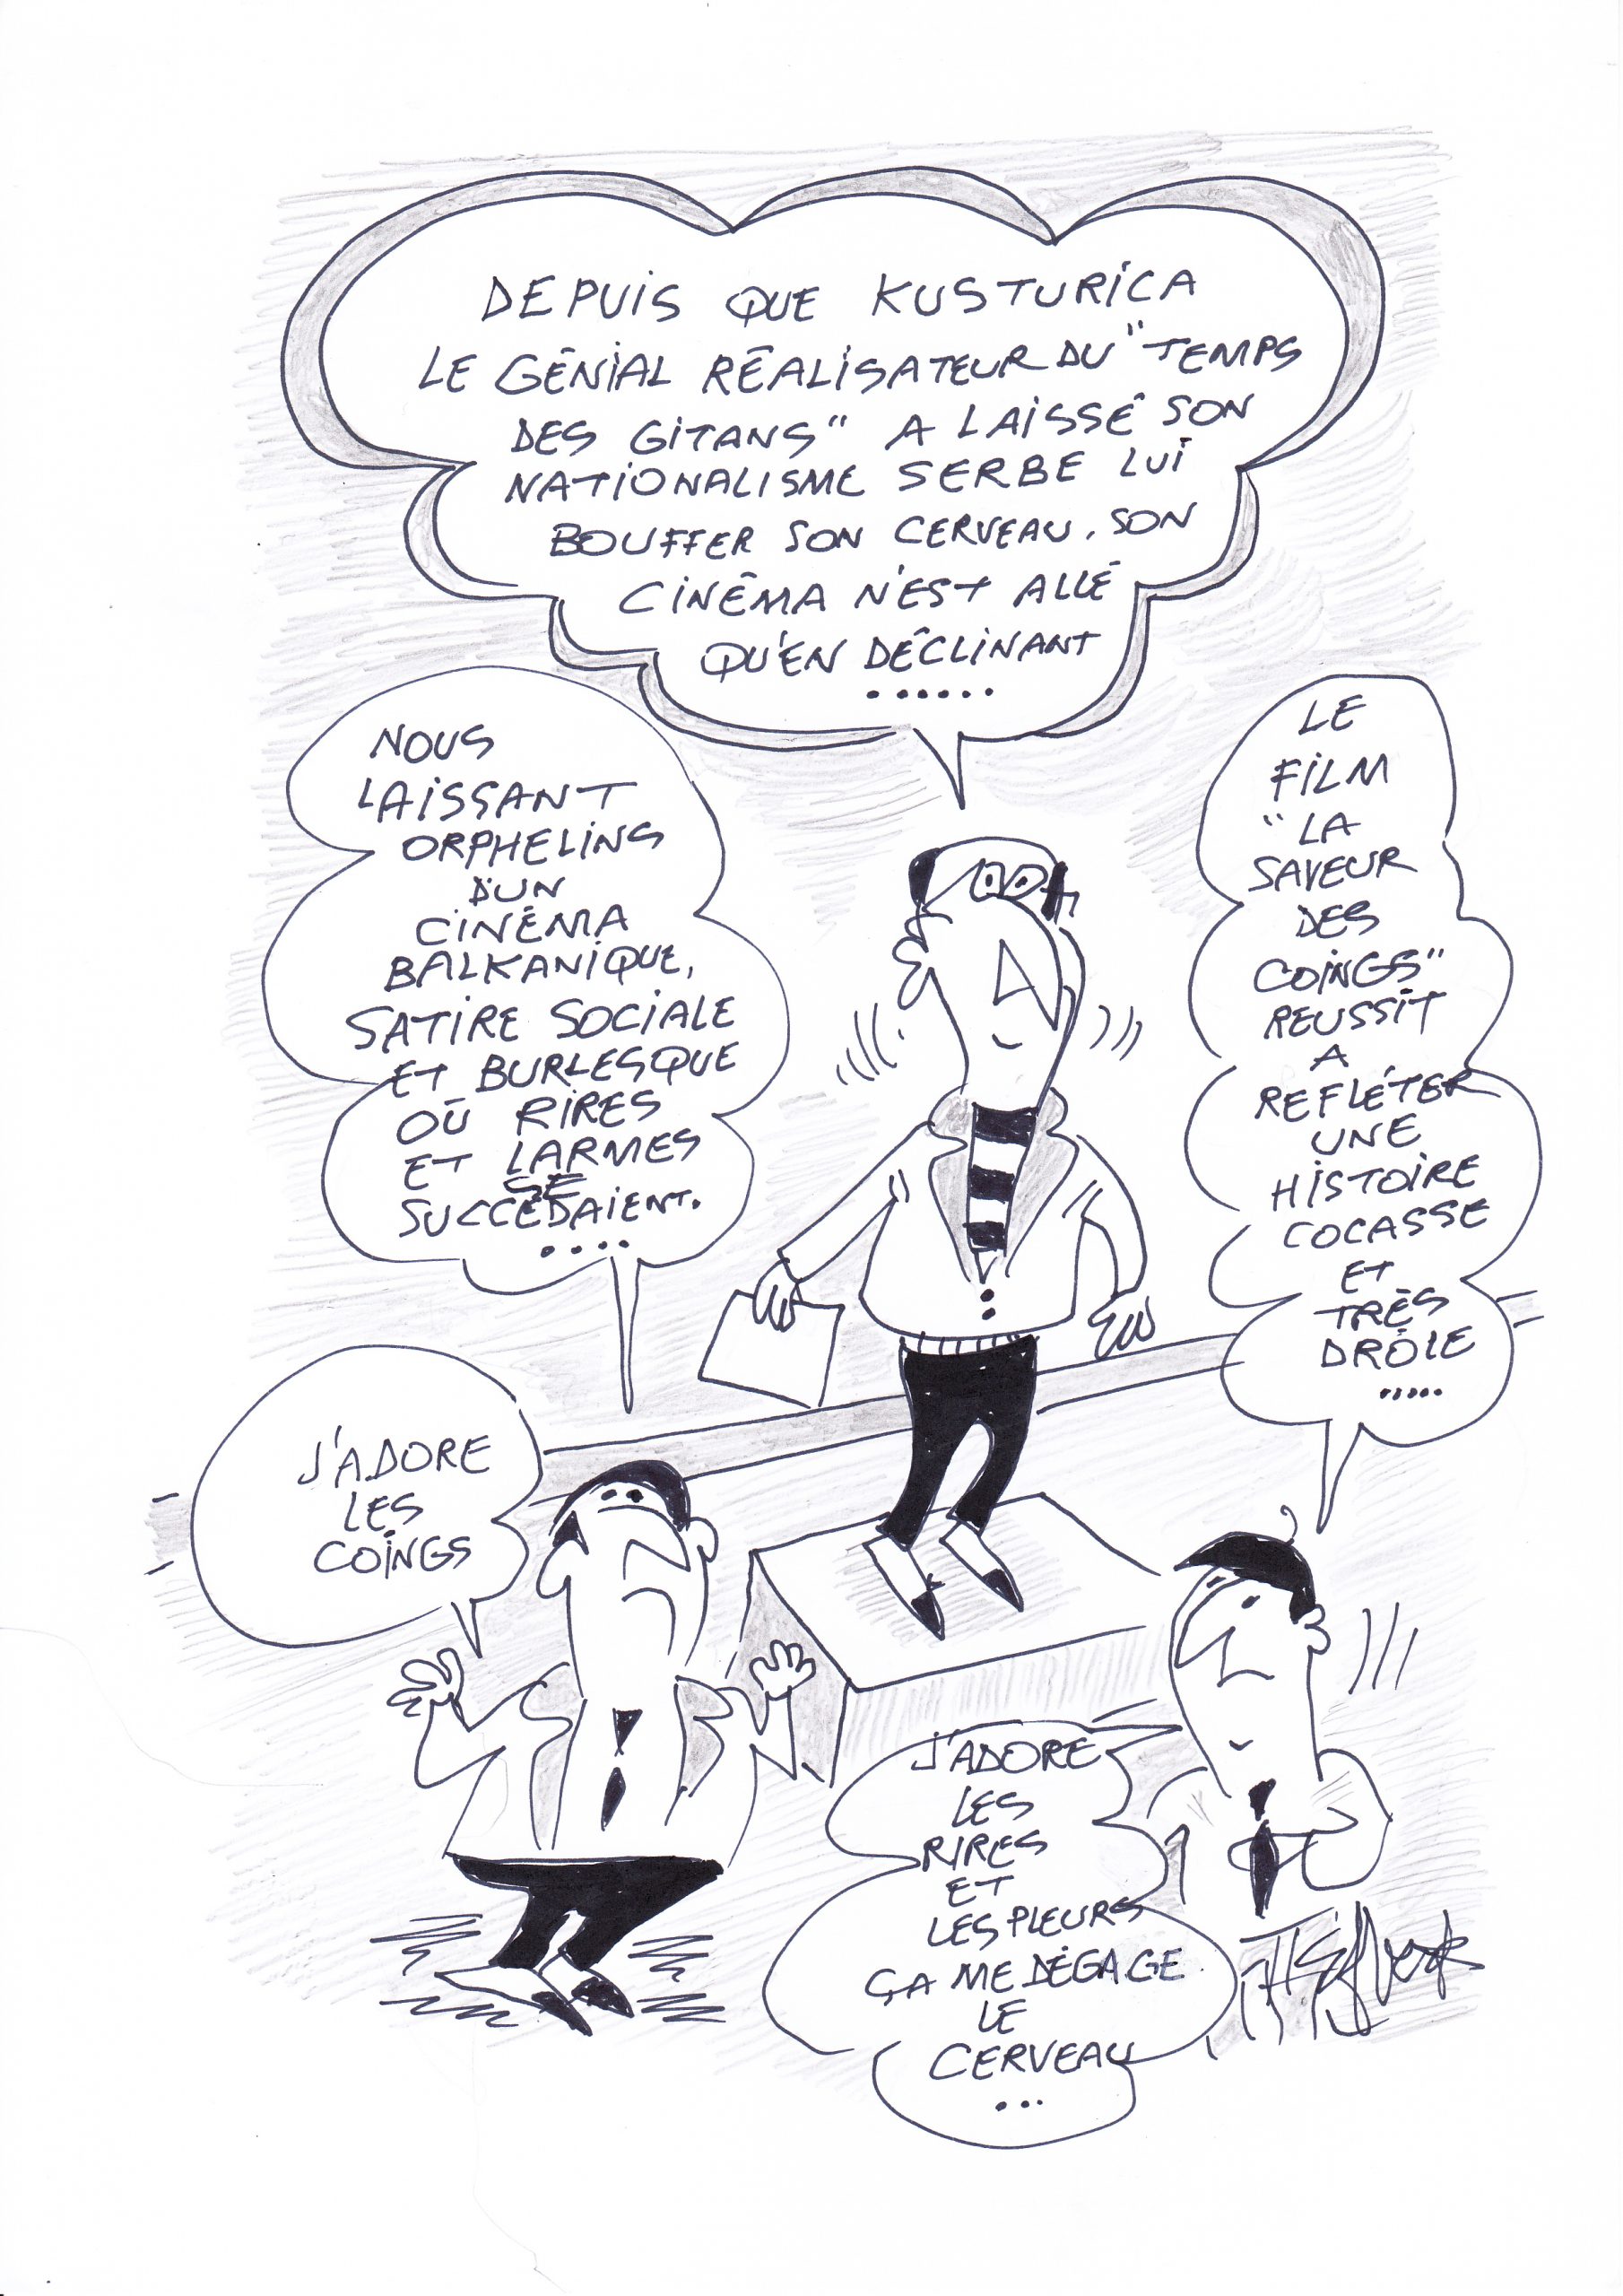 DEPUIS QUE KUSTURICA
LE GÉNIAL RÉALISATEUR DU "TEMPS
DES GITANS" A LAISSÉ SON
NATIONALISME SERBE LUI
BOUFFER SON CERVEAU. SON
CINÉMA N'EST ALLÉ
QU'EN DÉCLINANT
......
NOUS
LAISSANT
ORPHELINS
D'UN
CINÉMA
BALKANIQUE,
SATIRE SOCIALE
ET BURLESQUE
OÙ RIRES
ET LARMES
SE
SUCCÉDAIENT.
....
LE
FILM
"LA
SAVEUR
DES
COINGS"
REUSSIT
A
REFLÉTER
UNE
HISTOIRE
COCASSE
ET
TRÈS
DRÔLE
.....
J'ADORE
LES
COINGS
J'ADORE
LES
RIRES
ET
LES PLEURS
ÇA ME DÉGAGE
LE
CERVEAU
...